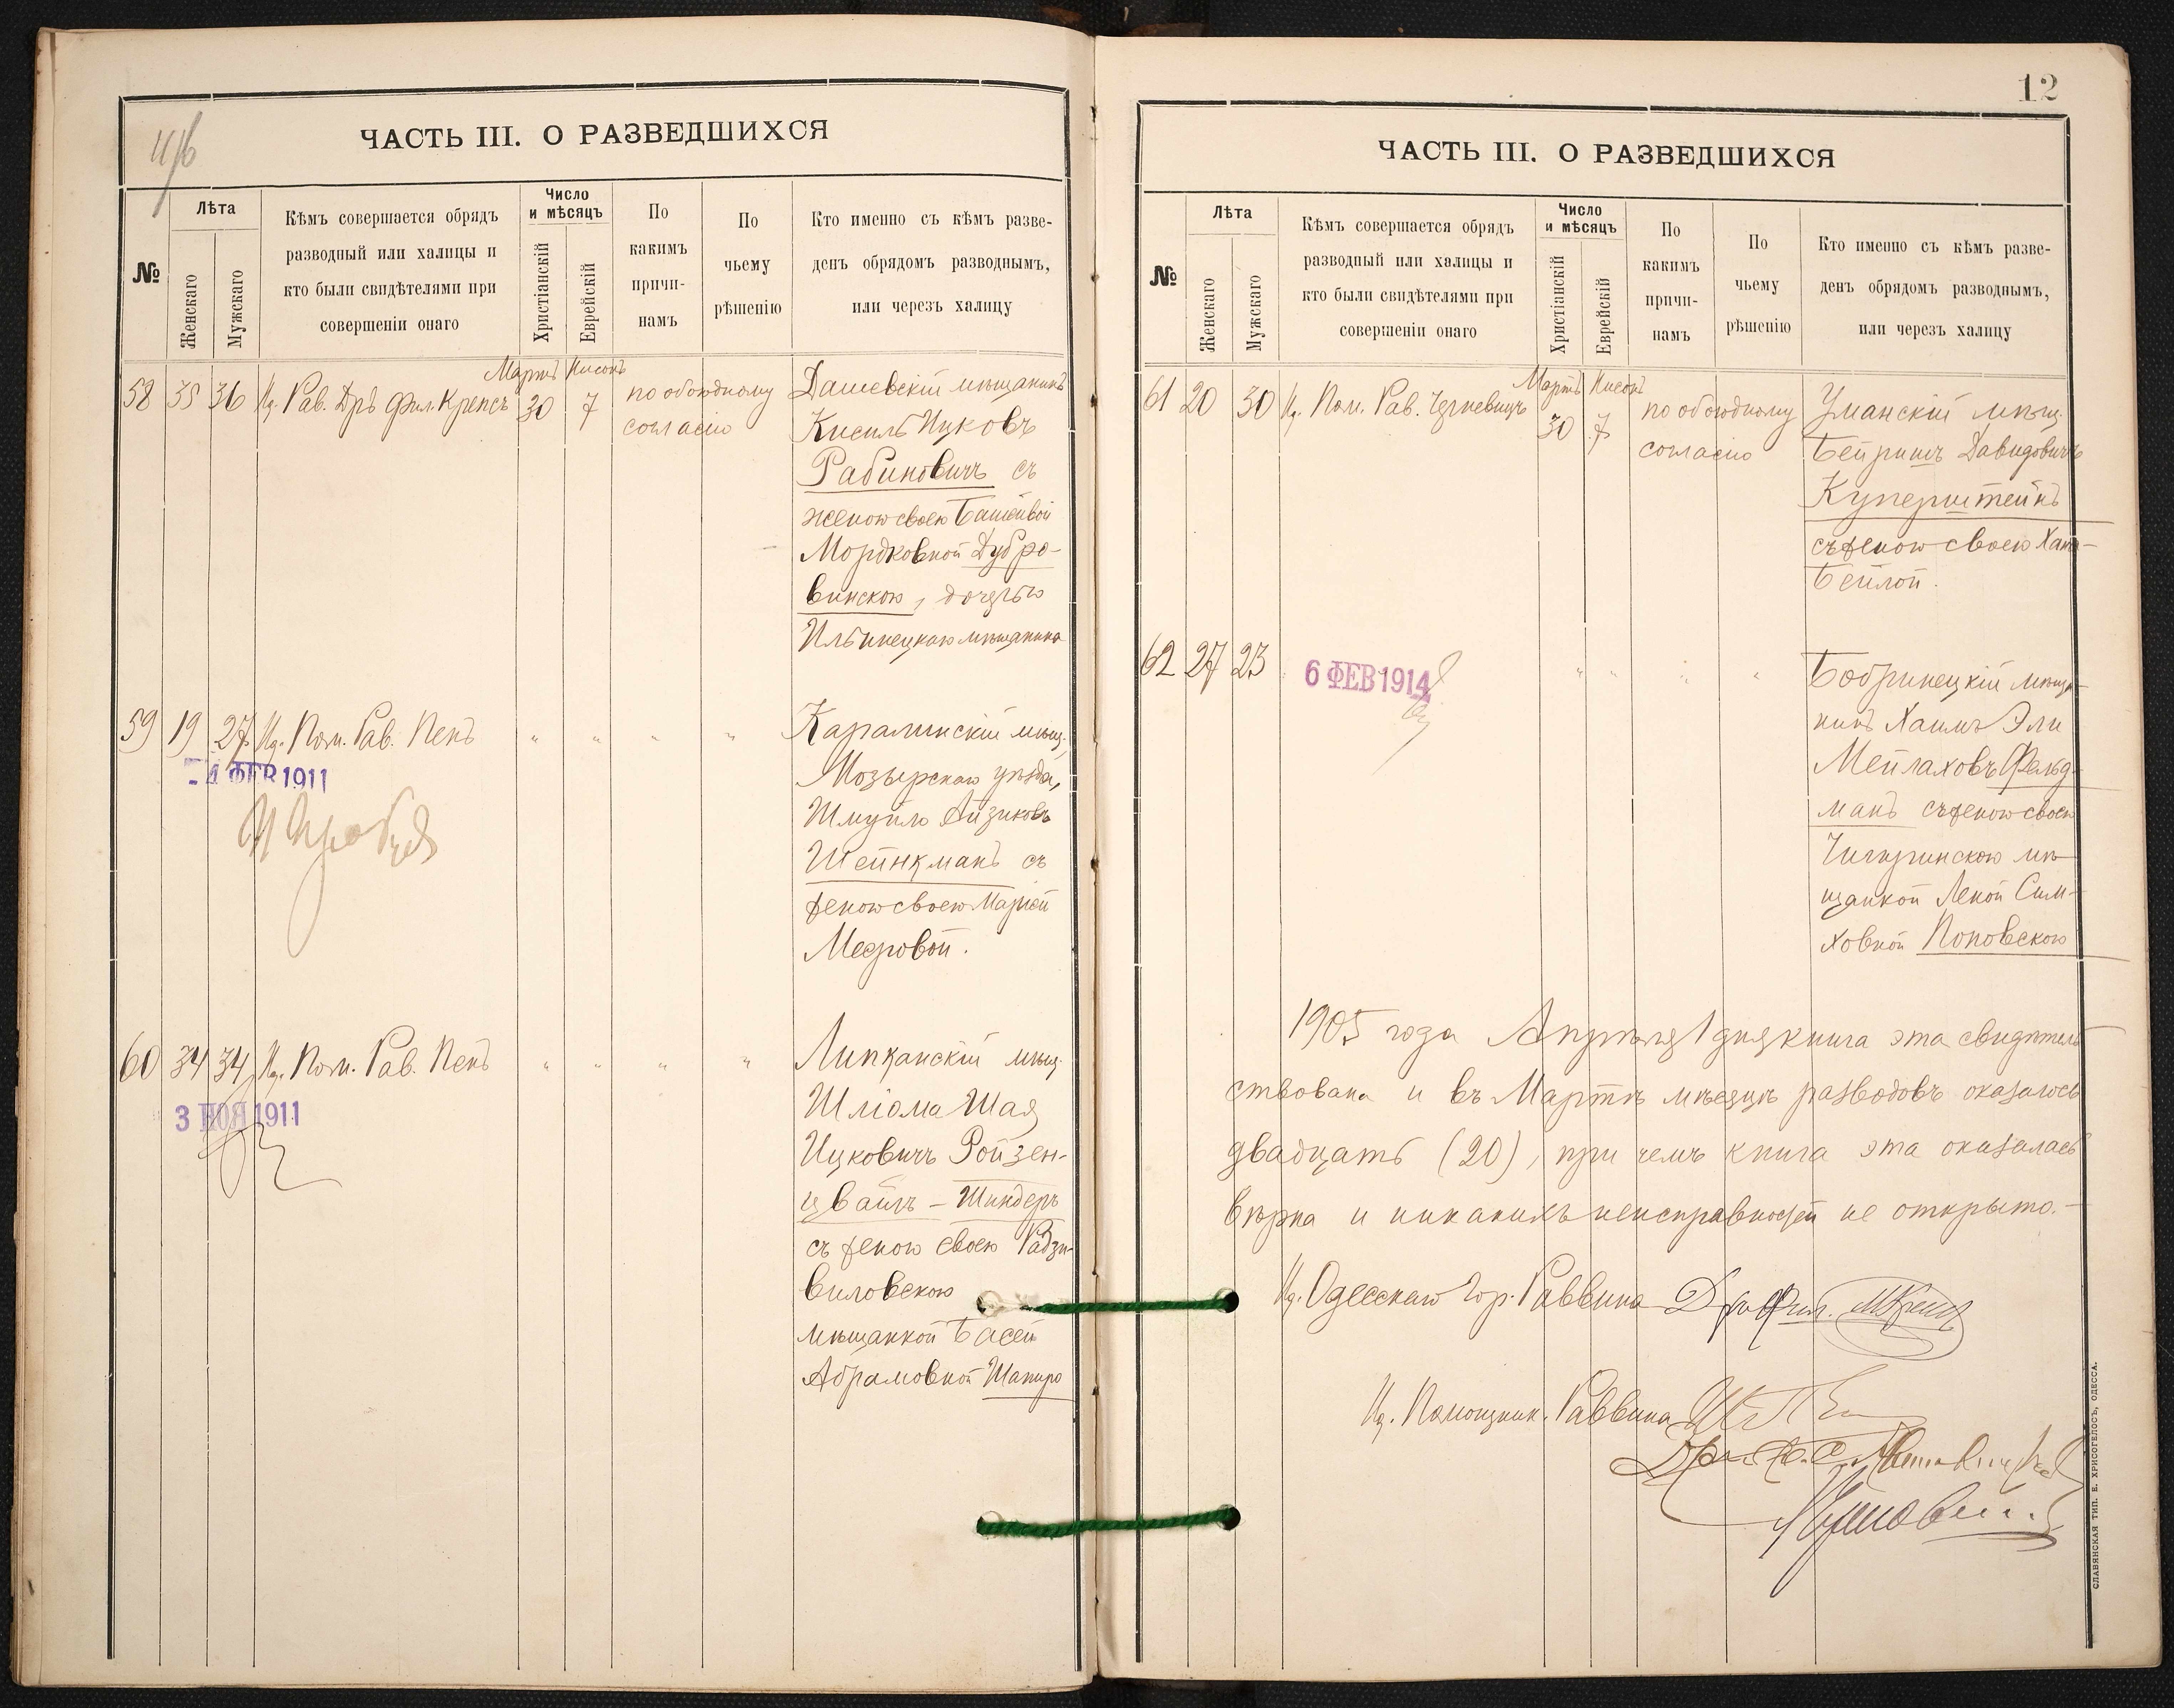 ЧАСТЬ III. О РАЗВЕДШИХСЯ
№
Лѣта
Женскаго
Мужскаго
Кѣмъ совершается обрядъ
разводный или халицы и
кто были свидѣтелями при
совершеніи онаго
Число
и мѣсяцъ
Христіанскій
Еврейскій
По
какимъ
причи-
намъ
По
чьему
рѣшенію
Кто именно съ кѣмъ разве-
денъ обрядомъ разводнымъ,
или черезъ халицу
Мартъ Нисонъ
58 35 36 Ид. Рав. Дръ Фил. Крепсъ 30 7 по обоюдному
согласію
Дашевскій мѣщанинъ
Кисиль Ицковъ
Рабиновичъ съ
женою своею Башейвой
Мордковной Дубро-
винскою, дочерью
Ильинецкаго мѣщанина
59 19 27 Ид. Пом. Рав. Пенъ " " " "
- 4 ФЕВ 1911
Каралинскій мѣщ.
Мозырскаго уѣзда,
Шмуйло Айзиковъ
Шейнкманъ съ
женою своею Маріей
Мееровой.
60 34 34 Ид. Пом. Рав. Пенъ " " " "
3 НОЯ 1911
Липканскій мѣщ.
Шліома Шая
Ицковичъ Ройзен-
цвайгъ - Шиндеръ
съ женою своею Радзи-
виловскою
мѣщанкой Басей
Абрамовной Шапиро
12
ЧАСТЬ III. О РАЗВЕДШИХСЯ
№
Лѣта
Женскаго
Мужскаго
Кѣмъ совершается обрядъ
разводный или халицы и
кто были свидѣтелями при
совершеніи онаго
Число
и мѣсяцъ
Христіанскій
Еврейскій
По
какимъ
причи-
намъ
По
чьему
рѣшенію
Кто именно съ кѣмъ разве-
денъ обрядомъ разводнымъ,
или черезъ халицу
Мартъ Нисонъ
61 20 30 Ид. Пом. Рав. 30 7 по обоюдному
согласію
Уманскій мѣщ.
Бейришъ Давидовичъ
Куперштейнъ
съ женою своею Хана-
Бейлой.
62 27 23 " " " "
6 ФЕВ 1914
Бобринецкій мѣща-
нинъ Хаимъ Эли
Мейлаховъ Фельд-
манъ съ женою своею
Чигиринскою мѣ-
щанкой Леной Сим-
ховной Поповскою
1905 года Апрѣля 1 дня книга эта свидѣтель
ствована и въ Мартѣ мѣсяцѣ разводовъ оказалось
двадцать (20), при чемъ книга эта оказалась
вѣрна и никакихъ неисправностей не открыто.-
Ид. Одесскаго Гор. Раввина Дръ Фил. М. Крепсъ
Ид. Помощник. Раввина
СЛАВЯНСКАЯ ТИП. Е. ХРИСОГЕЛОСЪ, ОДЕССА.